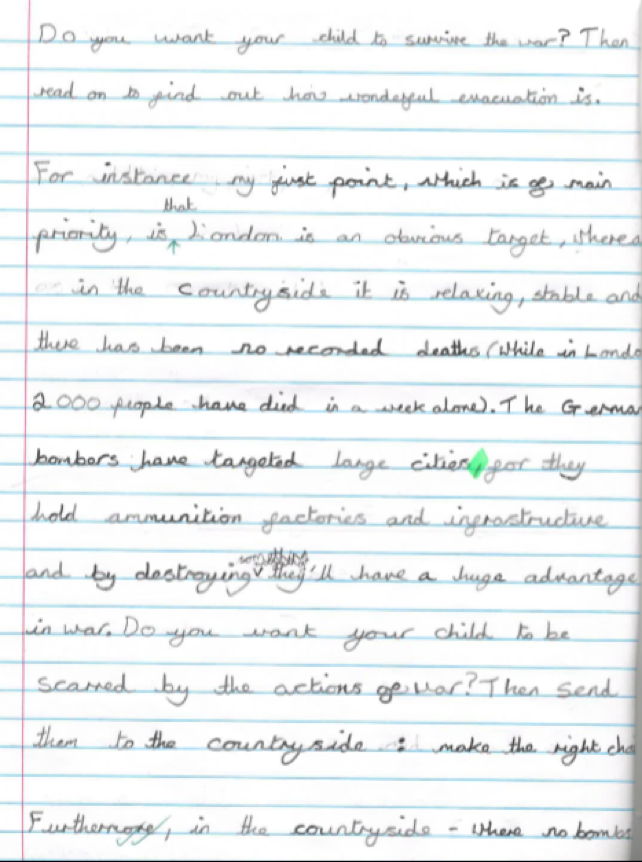 Do you want your child to survive the war? Then
read on to find out how wonderful evacuation is.
For instance my first point, which is of main
that
priority, is London is an obvious target, wherea
in the countryside it is relaxing, stable and
there has been no recorded deaths (while in Londo
2000 people have died in a week alone). The Germa
bombers have targeted large cities, for they
hold ammunition factories and infrastructure
and by destroying they'll have a huge advantage
in war. Do you want your child to be
scarred by the actions of war? Then send
them to the countryside : make the right cho
Furthermore, in the countryside - where no bombs